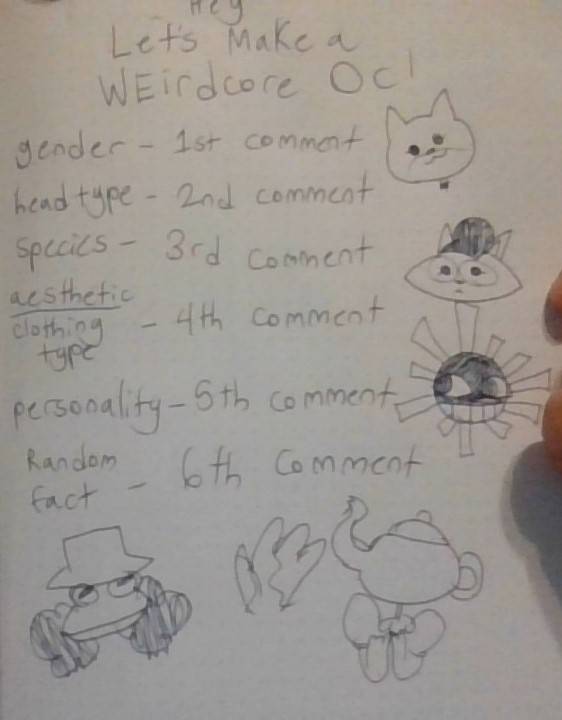 Hey
Let's Make a
WEirdcore Oc!
gender - 1st comment
head type - 2nd comment
species - 3rd comment
aesthetic
clothing type - 4th comment
personality - 5th comment
Random fact - 6th comment